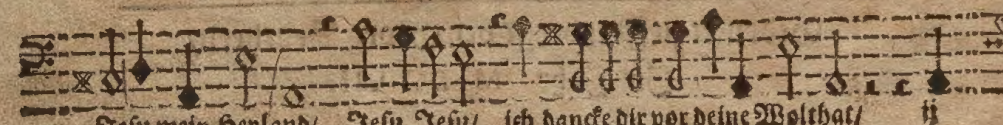 Jesu mein Heyland/ Jesu Jesu/ ich dancke dir vor deine Wolthat/ ij